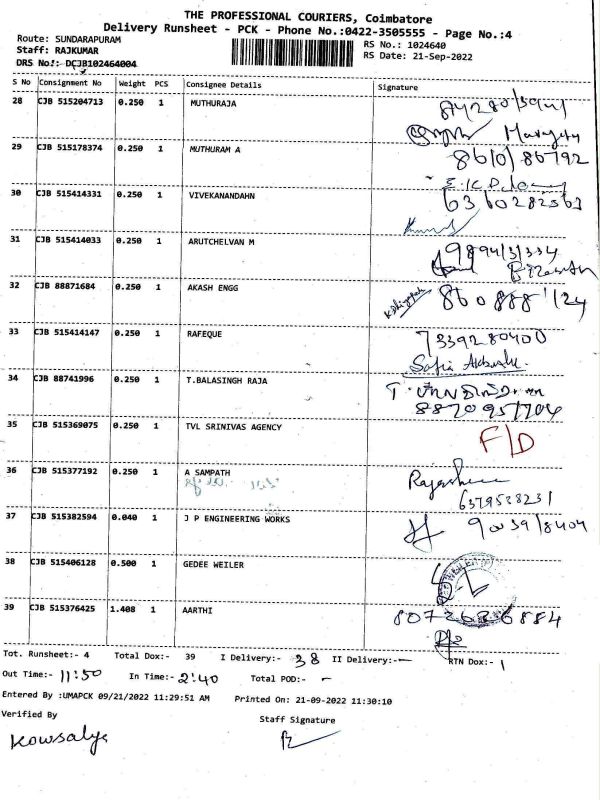 THE PROFESSIONAL COURIERS, Coimbatore
Delivery Runsheet - PCK - Phone No.:0422-3505555 - Page No.:4
Route: SUNDARAPURAM
RS No.: 1024640
Staff: RAJKUMAR
RS Date: 21-Sep-2022
DRS No.: DCJB102464004
S No Consignment No Weight PCS Consignee Details Signature
28 CJB 515204713 0.250 1 MUTHURAJA
29 CJB 515178374 0.250 1 MUTHURAM A
30 CJB 515414331 0.250 1 VIVEKANANDAHN
31 CJB 515414033 0.250 1 ARUTCHELVAN M
32 CJB 88871684 0.250 1 AKASH ENGG
33 CJB 515414147 0.250 1 RAFEQUE
7339280400
34 CJB 88741996 0.250 1 T.BALASINGH RAJA
35 CJB 515369075 0.250 1 TVL SRINIVAS AGENCY F/D
36 CJB 515377192 0.250 1 A SAMPATH
6379538231
37 CJB 515382594 0.040 1 J P ENGINEERING WORKS
38 CJB 515406128 0.500 1 GEDEE WEILER
39 CJB 515376425 1.408 1 AARTHI
Tot. Runsheet:- 4 Total Dox:- 39 I Delivery:- 38 II Delivery:- - RTN Dox:- 1
Out Time:- 11:50 In Time:- 2:40 Total POD:- -
Entered By :UMAPCK 09/21/2022 11:29:51 AM Printed On: 21-09-2022 11:30:10
Verified By Staff Signature
Kowsalya